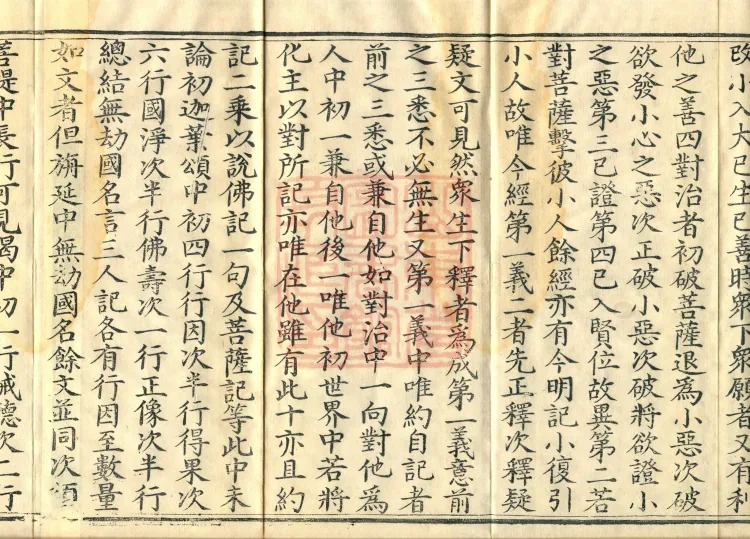 改小入大已生已善時衆下衆願者又有利
他之善四對治者初破菩薩退為小惡次破
欲發小心之惡次正破小惡次破將欲證小
之惡第三已證第四已入賢位故異第二若
對菩薩擊彼小人餘經亦有今明記小復引
小人故唯今經第一義二者先正釋次釋疑
疑文可見然衆生下釋者為成第一義意前
之三悉不必無生又第一義中唯約自記者
前之三悉或兼自他如對治中一向對他為
人中初一兼自他後一唯他初世界中若將
化主以對所記亦唯在他雖有此十亦且約
記二乘以說佛記一句及菩薩記等此中未
論初迦葉頌中初四行行因次半行得果次
六行國淨次半行佛壽次一行正像次半行
總結無劫國名言三人記各有行因至數量
如文者但旃延中無劫國名餘文並同次頌
菩提中長行可見偈中初一行戒德次二行